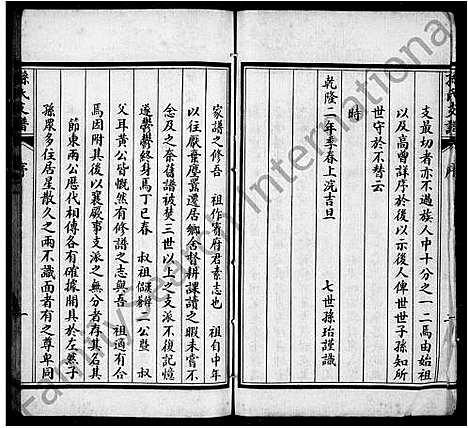 支最切者亦不過族人中十分之一二焉由始祖
以及高曾詳序於後以示後人俾世世子孫知所
世守於不替云
時
乾隆二年季春上浣吉旦
七世孫 謹識
家譜之修吾 祖作賓府君素志也 祖自中年
以往厭棄塵囂還居鄉舍督耕課讀之暇未嘗不
念及之奈舊譜被焚三世以上之支派不復記憶
遂鬱鬱終身焉丁已春 叔祖 二公暨 叔
父耳黃公皆慨然有修譜之志與吾 祖適有合
焉因附其後以襄厥事支派之無分者存其名其
節東兩公歷代相傳各有確據開具於左然子
孫眾多住居星散久之兩不識面者有之尊卑同
孫氏支譜
序
一
FamilySearch International